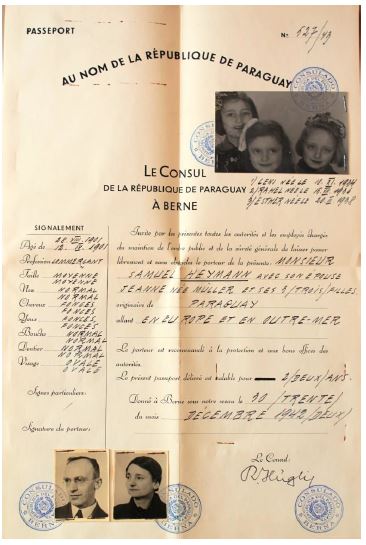 PASSEPORT
No 527/43
AU NOM DE LA RÉPUBLIQUE DE PARAGUAY
CONSULADO
LE CONSUL
DE LA RÉPUBLIQUE DE PARAGUAY
À BERNE
SIGNALEMENT
20. VIII. 1901
Âgé de 12. IX. 1901
Profession COMMERÇANT
Taille MOYENNE
MOYENNE
Nez NORMAL
NORMAL
Cheveux FONCÉS
FONCÉS
Yeux FONCÉS
FONCÉS
Bouche NORMAL
NORMAL
Dentier NORMAL
NORMAL
Visage OVALE
OVALE
Signes particuliers:
Signature du porteur:
Invite par les présentes toutes les autorités et les employés chargés
du maintien de l'ordre public et de la sûreté générale de laisser passer
librement et sans obstacles le porteur de la présente: MONSIEUR
SAMUEL HEYMANN AVEC SON EPOUSE
JEANNE NÉE MULLER ET SES 3/TROIS/FILLES
originaire de PARAGUAY
allant EN EUROPE ET EN OUTRE-MER
Le porteur est recommandé à la protection et aux bons offices des
autorités.
Le présent passeport délivré est valable pour 2/DEUX/ANS.
Donné à Berne sous notre sceau le 30/TRENTE/
du mois DÉCEMBRE 1942/DEUX/
Le Consul:
R. Hügli
CONSULADO
BERNA
CONSULADO
BERNA
CONSULADO
BERNA